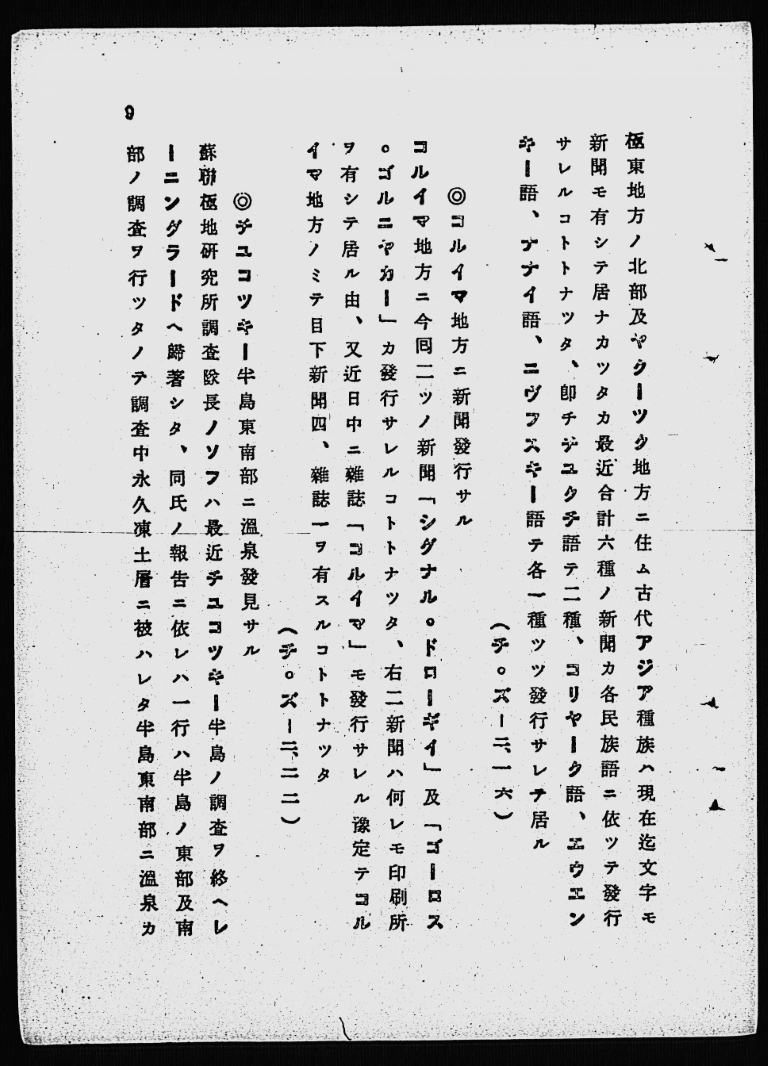 極東地方ノ北部及ヤクーツク地方ニ住ム古代アジア種族ハ現在迄文字モ
新聞モ有シテ居ナカツタカ最近合計六種ノ新聞カ各民族語ニ依ツテ發行
サレルコトトナツタ、卽チチユクチ語テ二種、コリヤーク語、エウエン
キー語、ナナイ語、ニヴフスキー語テ各一種ツツ發行サレテ居ル
(チ。ズー二、一六)
◎コルイマ地方ニ新聞發行サル
コルイマ地方ニ今囘二ツノ新聞「シグナル。ドローギイ」及「ゴーロス
。ゴルニヤカー」カ發行サレルコトトナツタ、右二新聞ハ何レモ印刷所
ヲ有シテ居ル由、又近日中ニ雜誌「コルイマ」モ發行サレル豫定テコル
イマ地方ノミテ目下新聞四、雜誌一ヲ有スルコトトナツタ
(チ。ズー二、二二)
◎チユコツキー半島東南部ニ溫泉發見サル
蘇聯極地硏究所調査隊長ノソフハ最近チユコツキー半島ノ調査ヲ終ヘレ
ーニングラードヘ歸著シタ、同氏ノ報告ニ依レハ一行ハ半島ノ東部及南
部ノ調査ヲ行ツタノテ調査中永久凍土層ニ被ハレタ半島東南部ニ溫泉カ
9